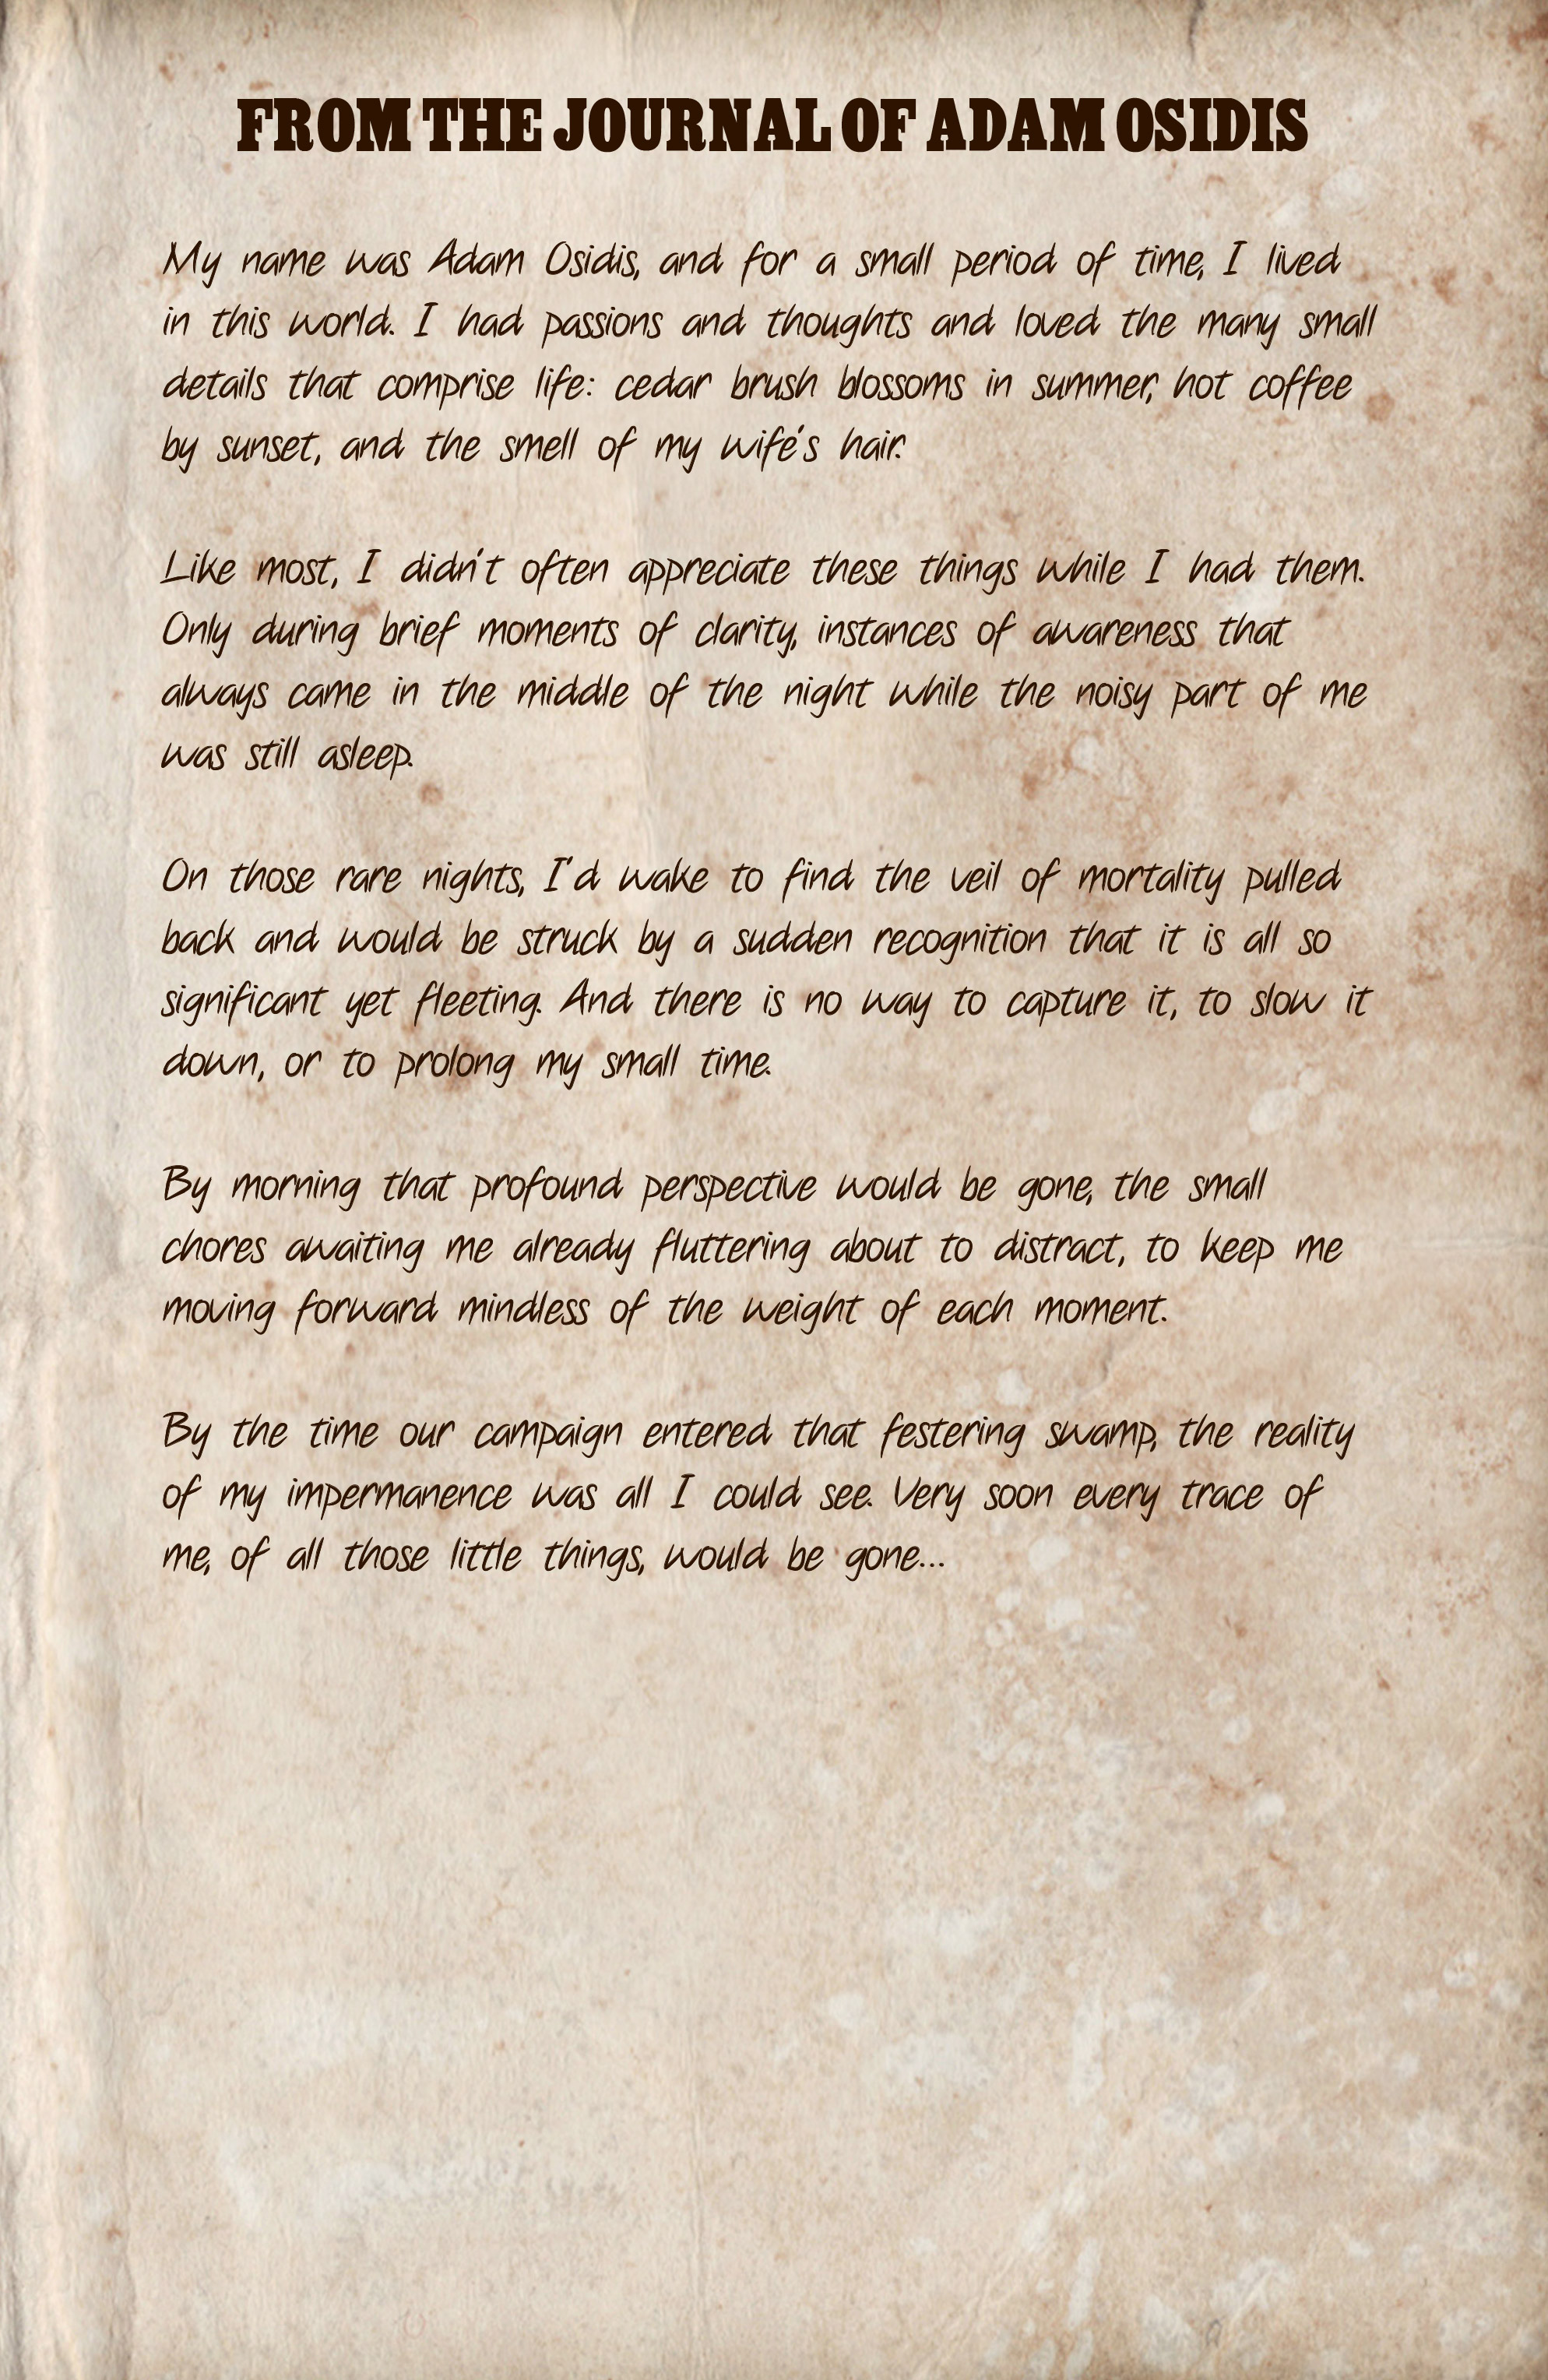 FROM THE JOURNAL OF ADAM OSIDIS
My name was Adam Osidis, and for a small period of time, I lived
in this world. I had passions and thoughts and loved the many small
details that comprise life: cedar brush blossoms in summer, hot coffee
by sunset, and the smell of my wife's hair.
Like most, I didn't often appreciate these things while I had them.
Only during brief moments of clarity, instances of awareness that
always came in the middle of the night while the noisy part of me
was still asleep.
On those rare nights, I'd wake to find the veil of mortality pulled
back and would be struck by a sudden recognition that it is all so
significant yet fleeting. And there is no way to capture it, to slow it
down, or to prolong my small time.
By morning that profound perspective would be gone, the small
chores awaiting me already fluttering about to distract, to keep me
moving forward mindless of the weight of each moment.
By the time our campaign entered that festering swamp, the reality
of my impermanence was all I could see. Very soon every trace of
me, of all those little things, would be gone...